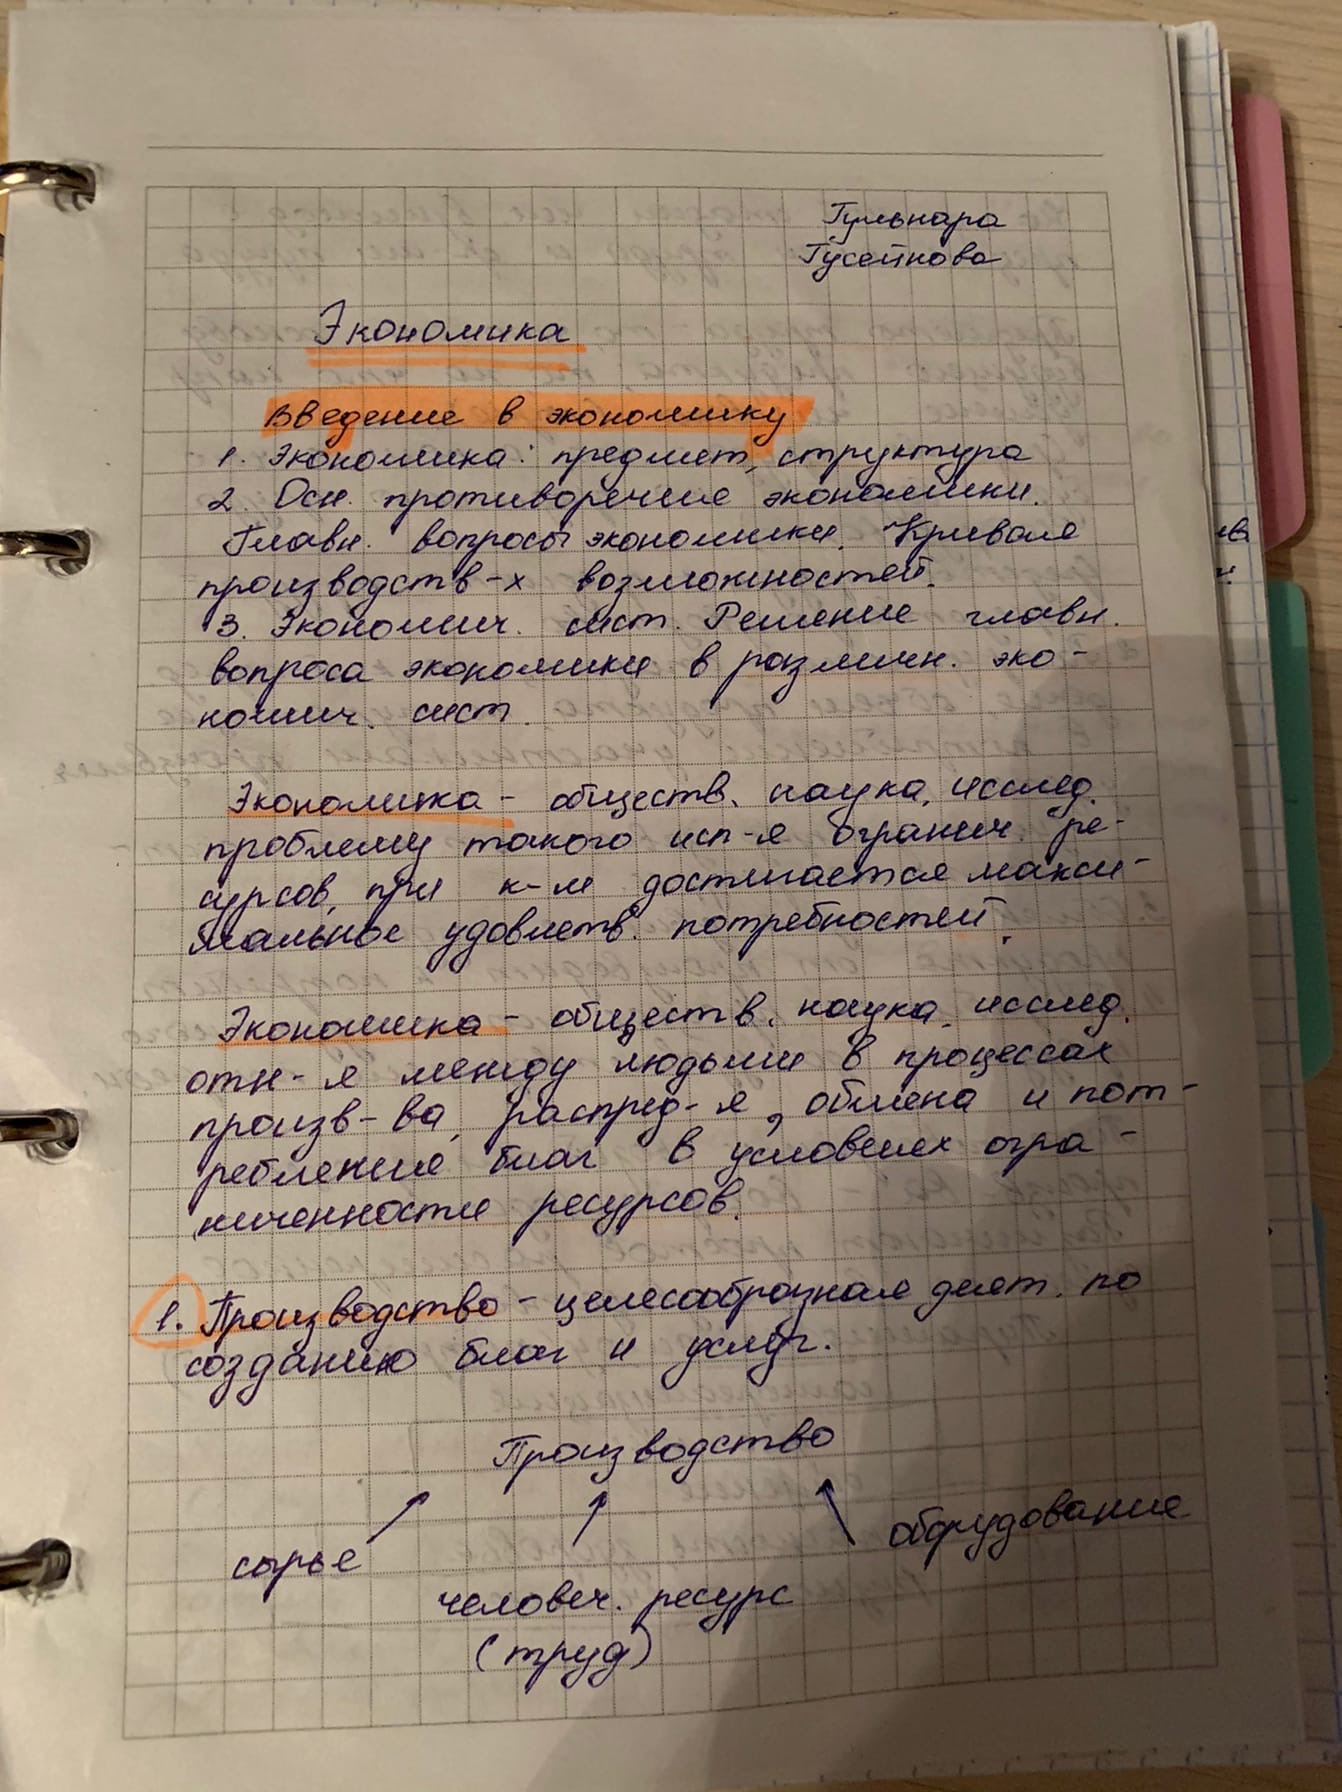 Гульнара
Гусейнова
Экономика
Введение в экономику
1. Экономика: предмет, структура
2. Осн. противоречие экономики.
Главн. вопросы экономики. Кривая
производств-х возможностей.
3. Экономич. сист. Решение главн.
вопроса экономики в различн. эко-
номич. сист.
Экономика - обществ. наука, исслед.
проблему такого исп-я огранич. ре-
сурсов, при к-м достигается макси-
мальное удовлетв. потребностей.
Экономика - обществ. наука, исслед.
отн-я между людьми в процессах
произв-ва, распред-я, обмена и пот-
ребления благ в условиях огра-
ниченности ресурсов.
1. Производство - целесообразная деят. по
созданию благ и услуг.
Производство
оборудование
сырье
человеч. ресурс
(труд)